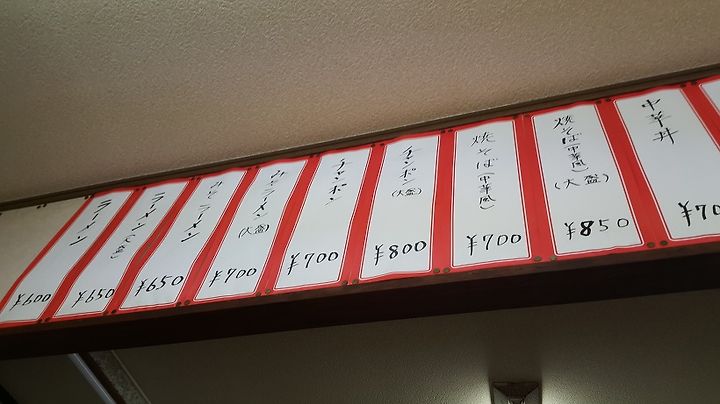 ラーメン
¥600
ラーメン(大盛)
¥650
みそラーメン
¥650
みそラーメン
(大盛)
¥700
チャンポン
¥700
チャンポン
(大盛)
¥800
焼そば(中華風)
¥700
焼そば(中華風)
(大盛)
¥850
中羊丼
¥70